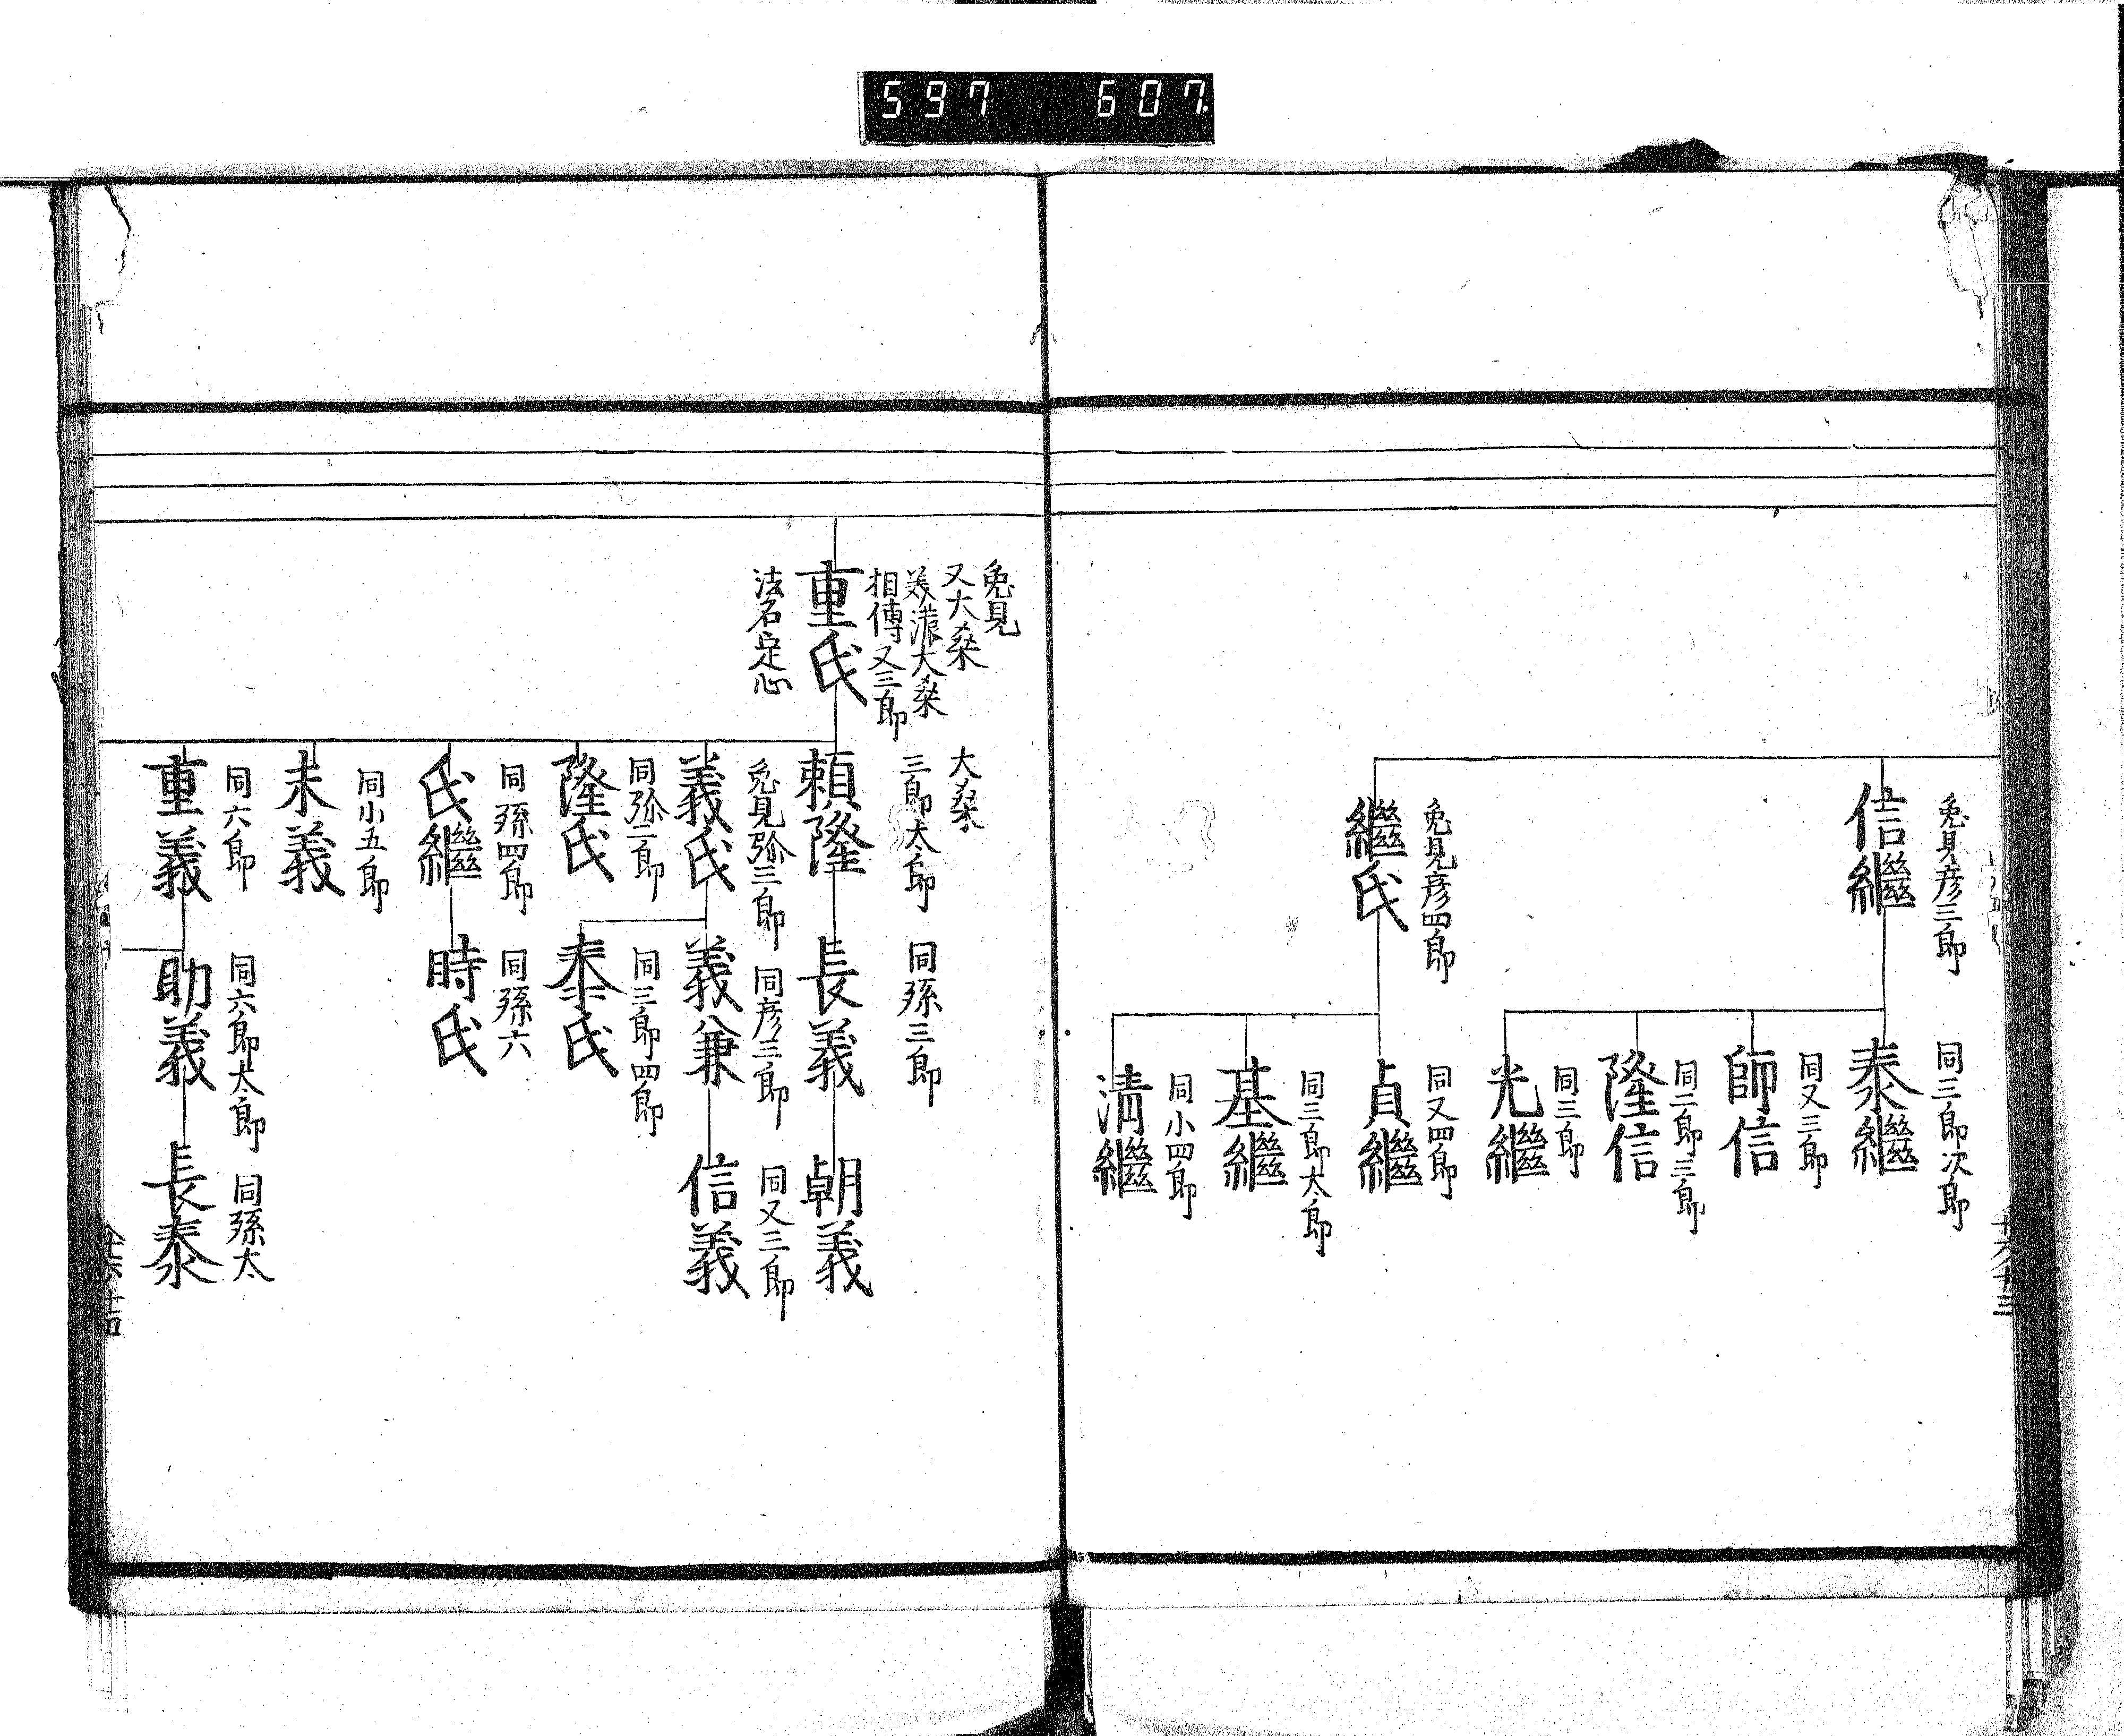 597 607
兎見彦三郎
信繼
同三郎次郎
泰繼
同又三郎
師信
同二郎三郎
隆信
同三郎
光繼
兎見彦四郎
繼氏
同又四郎
貞繼
同三郎太郎
基繼
同小四郎
淸繼
兎見
又大桒
美濃大桒
相傳又三郎
重氏
法名定心
大桒
三郎太郎
頼隆
同孫三郎
長義
朝義
兎見弥三郎
義氏
同彦三郎
義兼
同又三郎
信義
同弥二郎
隆氏
同三郎四郎
泰氏
同孫四郎
氏繼
同孫六
時氏
同小五郎
末義
同六郎
重義
同六郎太郎
助義
同孫太
長泰